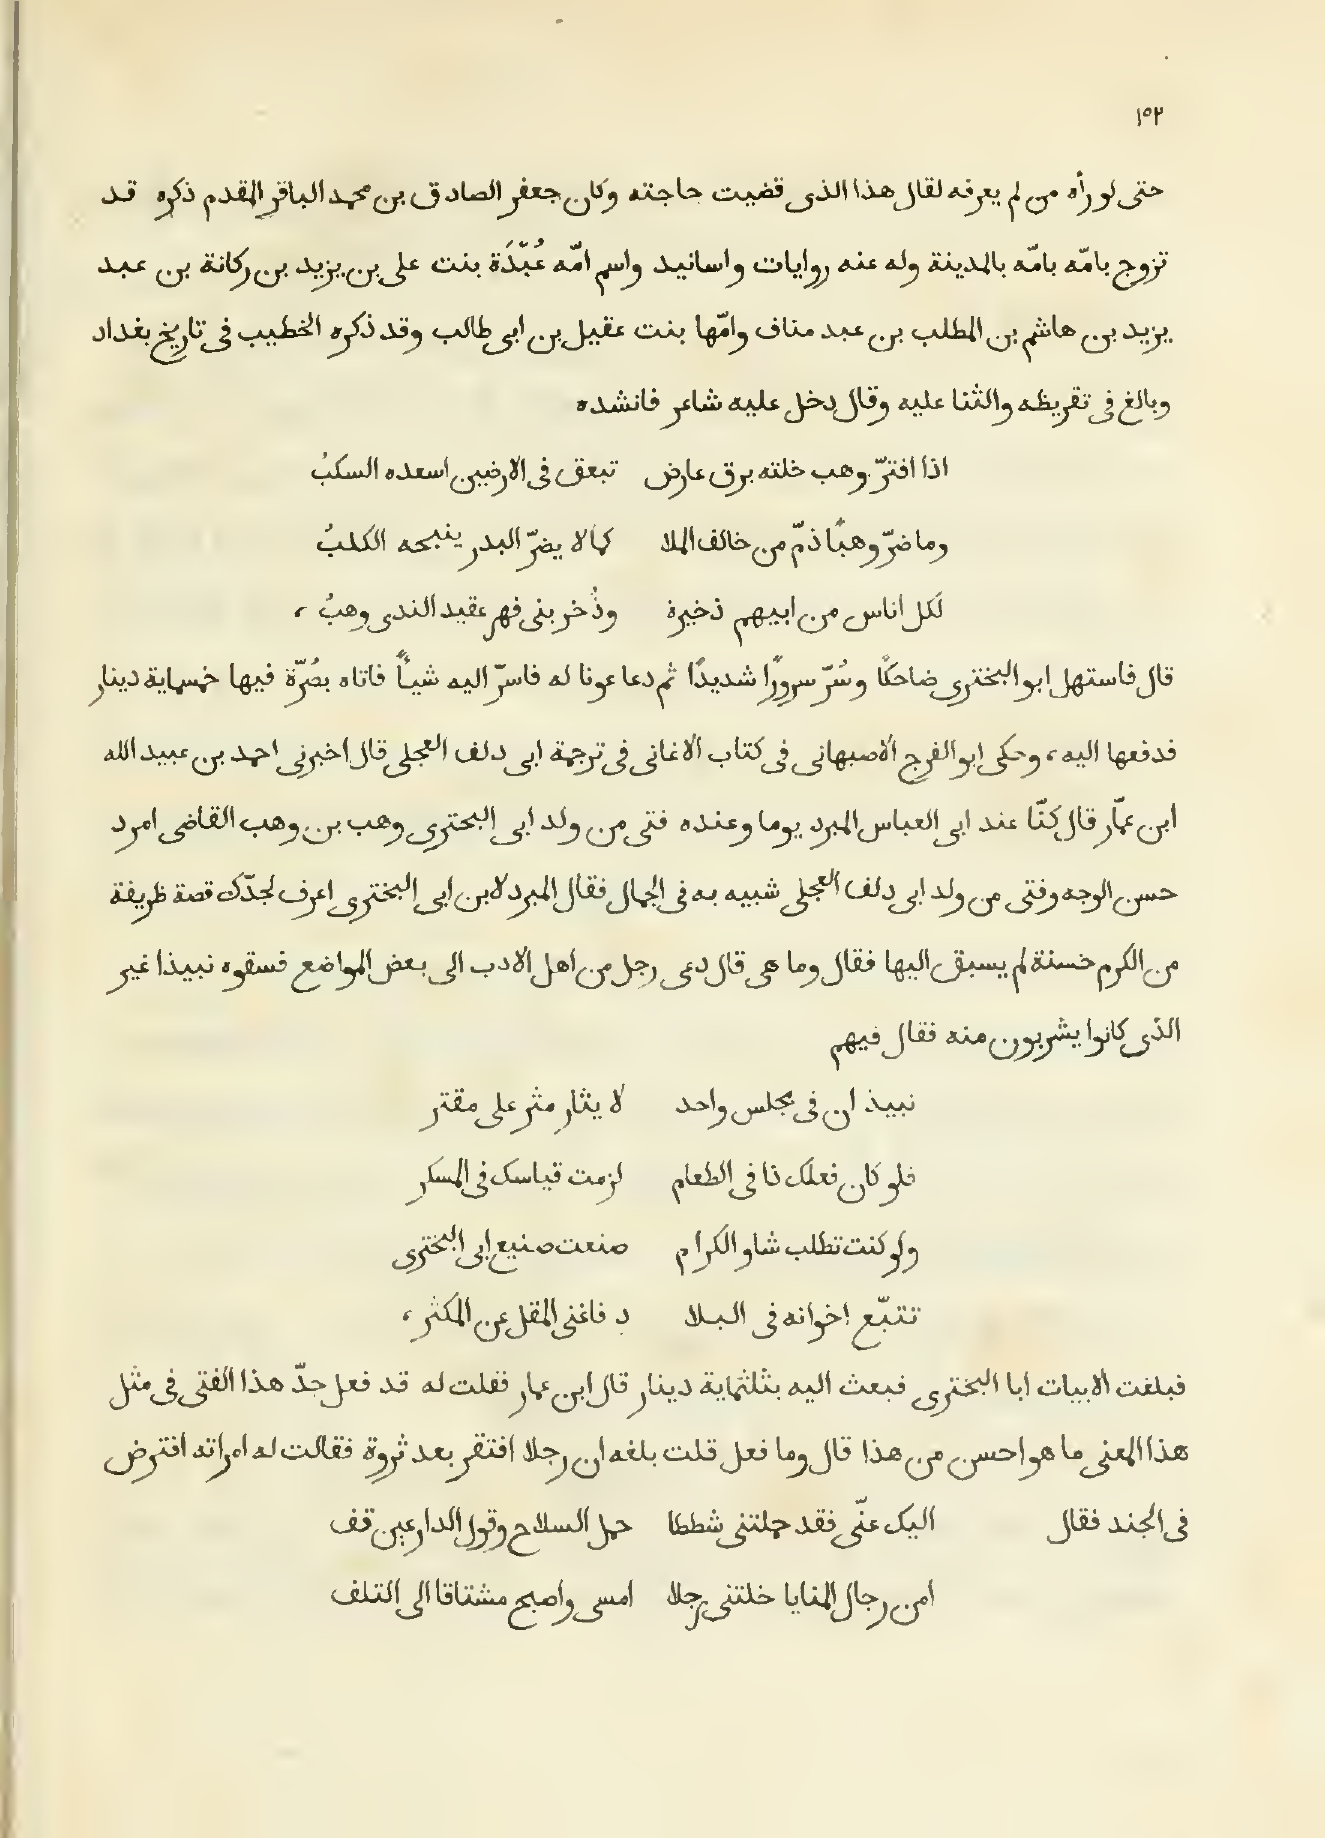 ١٥٢
حتى لو رأه من لم يعرفه لقال هذا الذى قضيت حاجته وكان جعفر الصادق بن محمد الباقر المقدم ذكره قد
تزوج بامّه بامّه بالمدينة وله عنه روايات واسانيد واسم امّه عُبّدَة بنت على بن يزيد بن ركانة بن عبد
يزيد بن هاشم بن المطلب بن عبد مناف وامّها بنت عقيل بن ابى طالب وقد ذكره الخطيب فى تاريخ بغداد
وبالغ فى تقريظه والثنا عليه وقال دخل عليه شاعر فانشده
اذا افترّ وهب خلته برق عارض تبعق فى الارضين اسعده السكبُ
وما ضرّ وهبًا ذمّ من خالف الملا كما لا يضرّ البدر ينبحه الكلبُ
لكل اناس من ابيهم ذخيرة وذُخر بنى فهر عقيد الندى وهبُ ،
قال فاستهل ابو البخترى ضاحكًا وسُرّ سرورًا شديدًا ثم دعا عونا له فاسرّ اليه شيأً فاتاه بصُرّة فيها خمسماية دينار
فدفعها اليه ، وحكى ابو الفرج الاصبهانى فى كتاب الاغانى فى ترجمة ابى دلف العجلى قال اخبرنى احمد بن عبيد الله
ابن عمّار قال كنّا عند ابى العباس المبرد يوما وعنده فتى من ولد ابى البحترى وهب بن وهب القاضى امرد
حسن الوجه وفتى من ولد ابى دلف العجلى شبيه به فى الجمال فقال المبرد لابن ابى البخترى اعرف لجدّك قصة ظريفة
من الكرم حسنة لم يسبق اليها فقال وما هى قال دعى رجل من اهل الادب الى بعض المواضع فسقوه نبيذا غير
الذى كانوا يشربون منه فقال فيهم
نبيذ ان فى مجلس واحد لا يثار مثر على مقتر
فلو كان فعلك ذا فى الطعام لزمت قياسك فى المسكر
ولو كنت تطلب شاو الكرام صنعت صنيع ابى البخترى
تتبّع اخوانه فى البلا د فاغنى المقل عن المكثر ،
فبلغت الابيات ابا البخترى فبعث اليه بثلثماية دينار قال ابن عمار فقلت له قد فعل جدّ هذا الفتى فى مثل
هذا المعنى ما هو احسن من هذا قال وما فعل قلت بلغه ان رجلا افتقر بعد ثروة فقالت له امراته افترض
فى الجند فقال اليك عنّى فقد حملتنى شططا حمل السلاح وقول الدارعين قف
امن رجال المنايا خلتنى رجلا امسى واصبح مشتاقا الى التلف